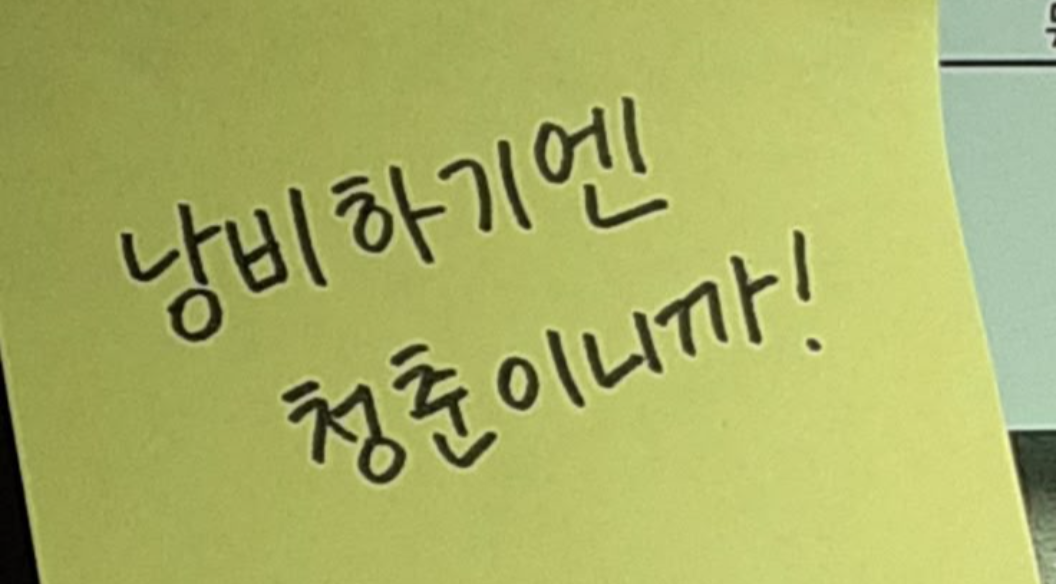 낭비하기엔
청춘이니까!